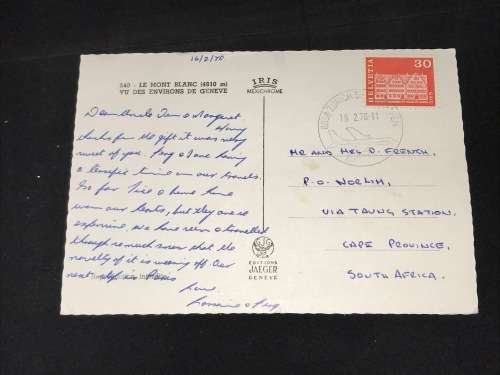 16/2/70
340 - LE MONT BLANC (4810 m)
VU DES ENVIRONS DE GENEVE
IRIS
MEXICHROME
HELVETIA 30
2.70-11
Dear Uncle & Margaret
Many
thanks for the gift it was very
sweet of you. & I are having
a terrific time on our travels.
So far &
our boots, but they are so
expensive, we have been & travelled
through so much snow that the
novelty of it is wearing off. Our
next stop is Paris
Love
MR AND MRS D. FRENCH,
P.O. NORLIM,
VIA TAUNG STATION,
CAPE PROVINCE,
SOUTH AFRICA.
EDITIONS
JAEGER
GENEVE